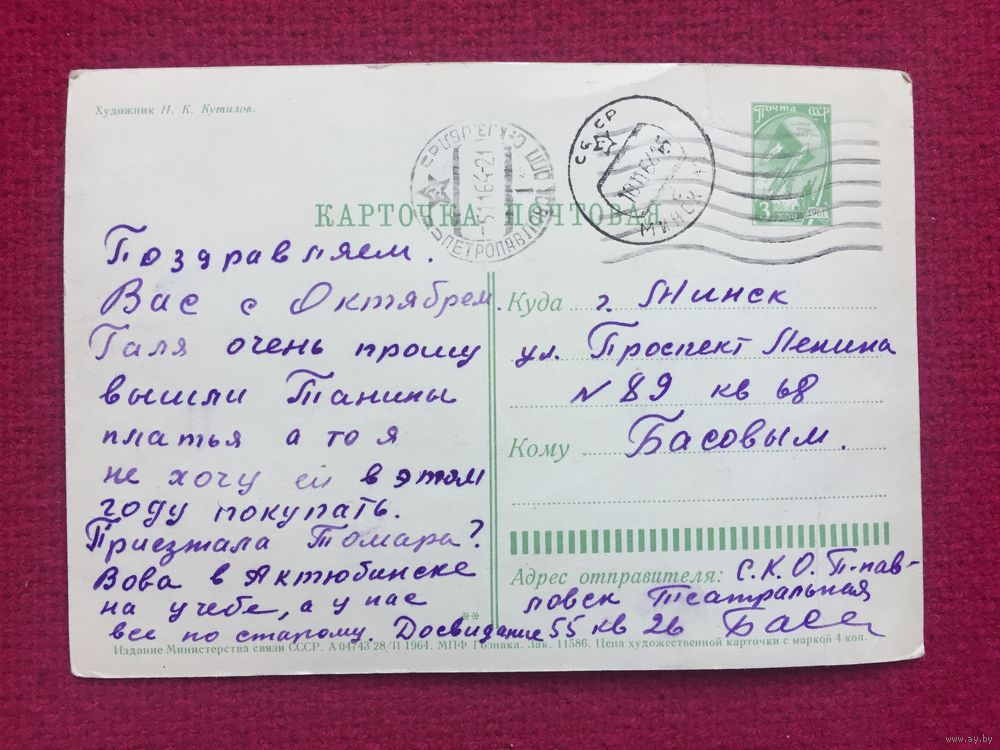 Художник И. К. Кутилов.
ПОЧТА СССР
3 КОП 1961
СССР
МИНСК
ПЕТРОПАВЛОВСК
КАРТОЧКА ПОЧТОВАЯ
Поздравляем.
Вас с Октябрем.
Галя очень прошу
вышли Танины
платья а то я
не хочу ей в этом
году покупать.
Приезжала Томара?
Вова в Актюбинске
на учебе, а у нас
все по старому. Досвидание
Куда г. Минск
ул. Проспект Ленина
N 89 кв 68
Кому Басовым.
Адрес отправителя: С.К.О. П-пав-
ловск Театральная
55 кв 26
Издание Министерства связи СССР. А 04743 28/II 1964. МПФ Гознака. Зак. 11586. Цена художественной карточки с маркой 4 коп.
www.ay.by